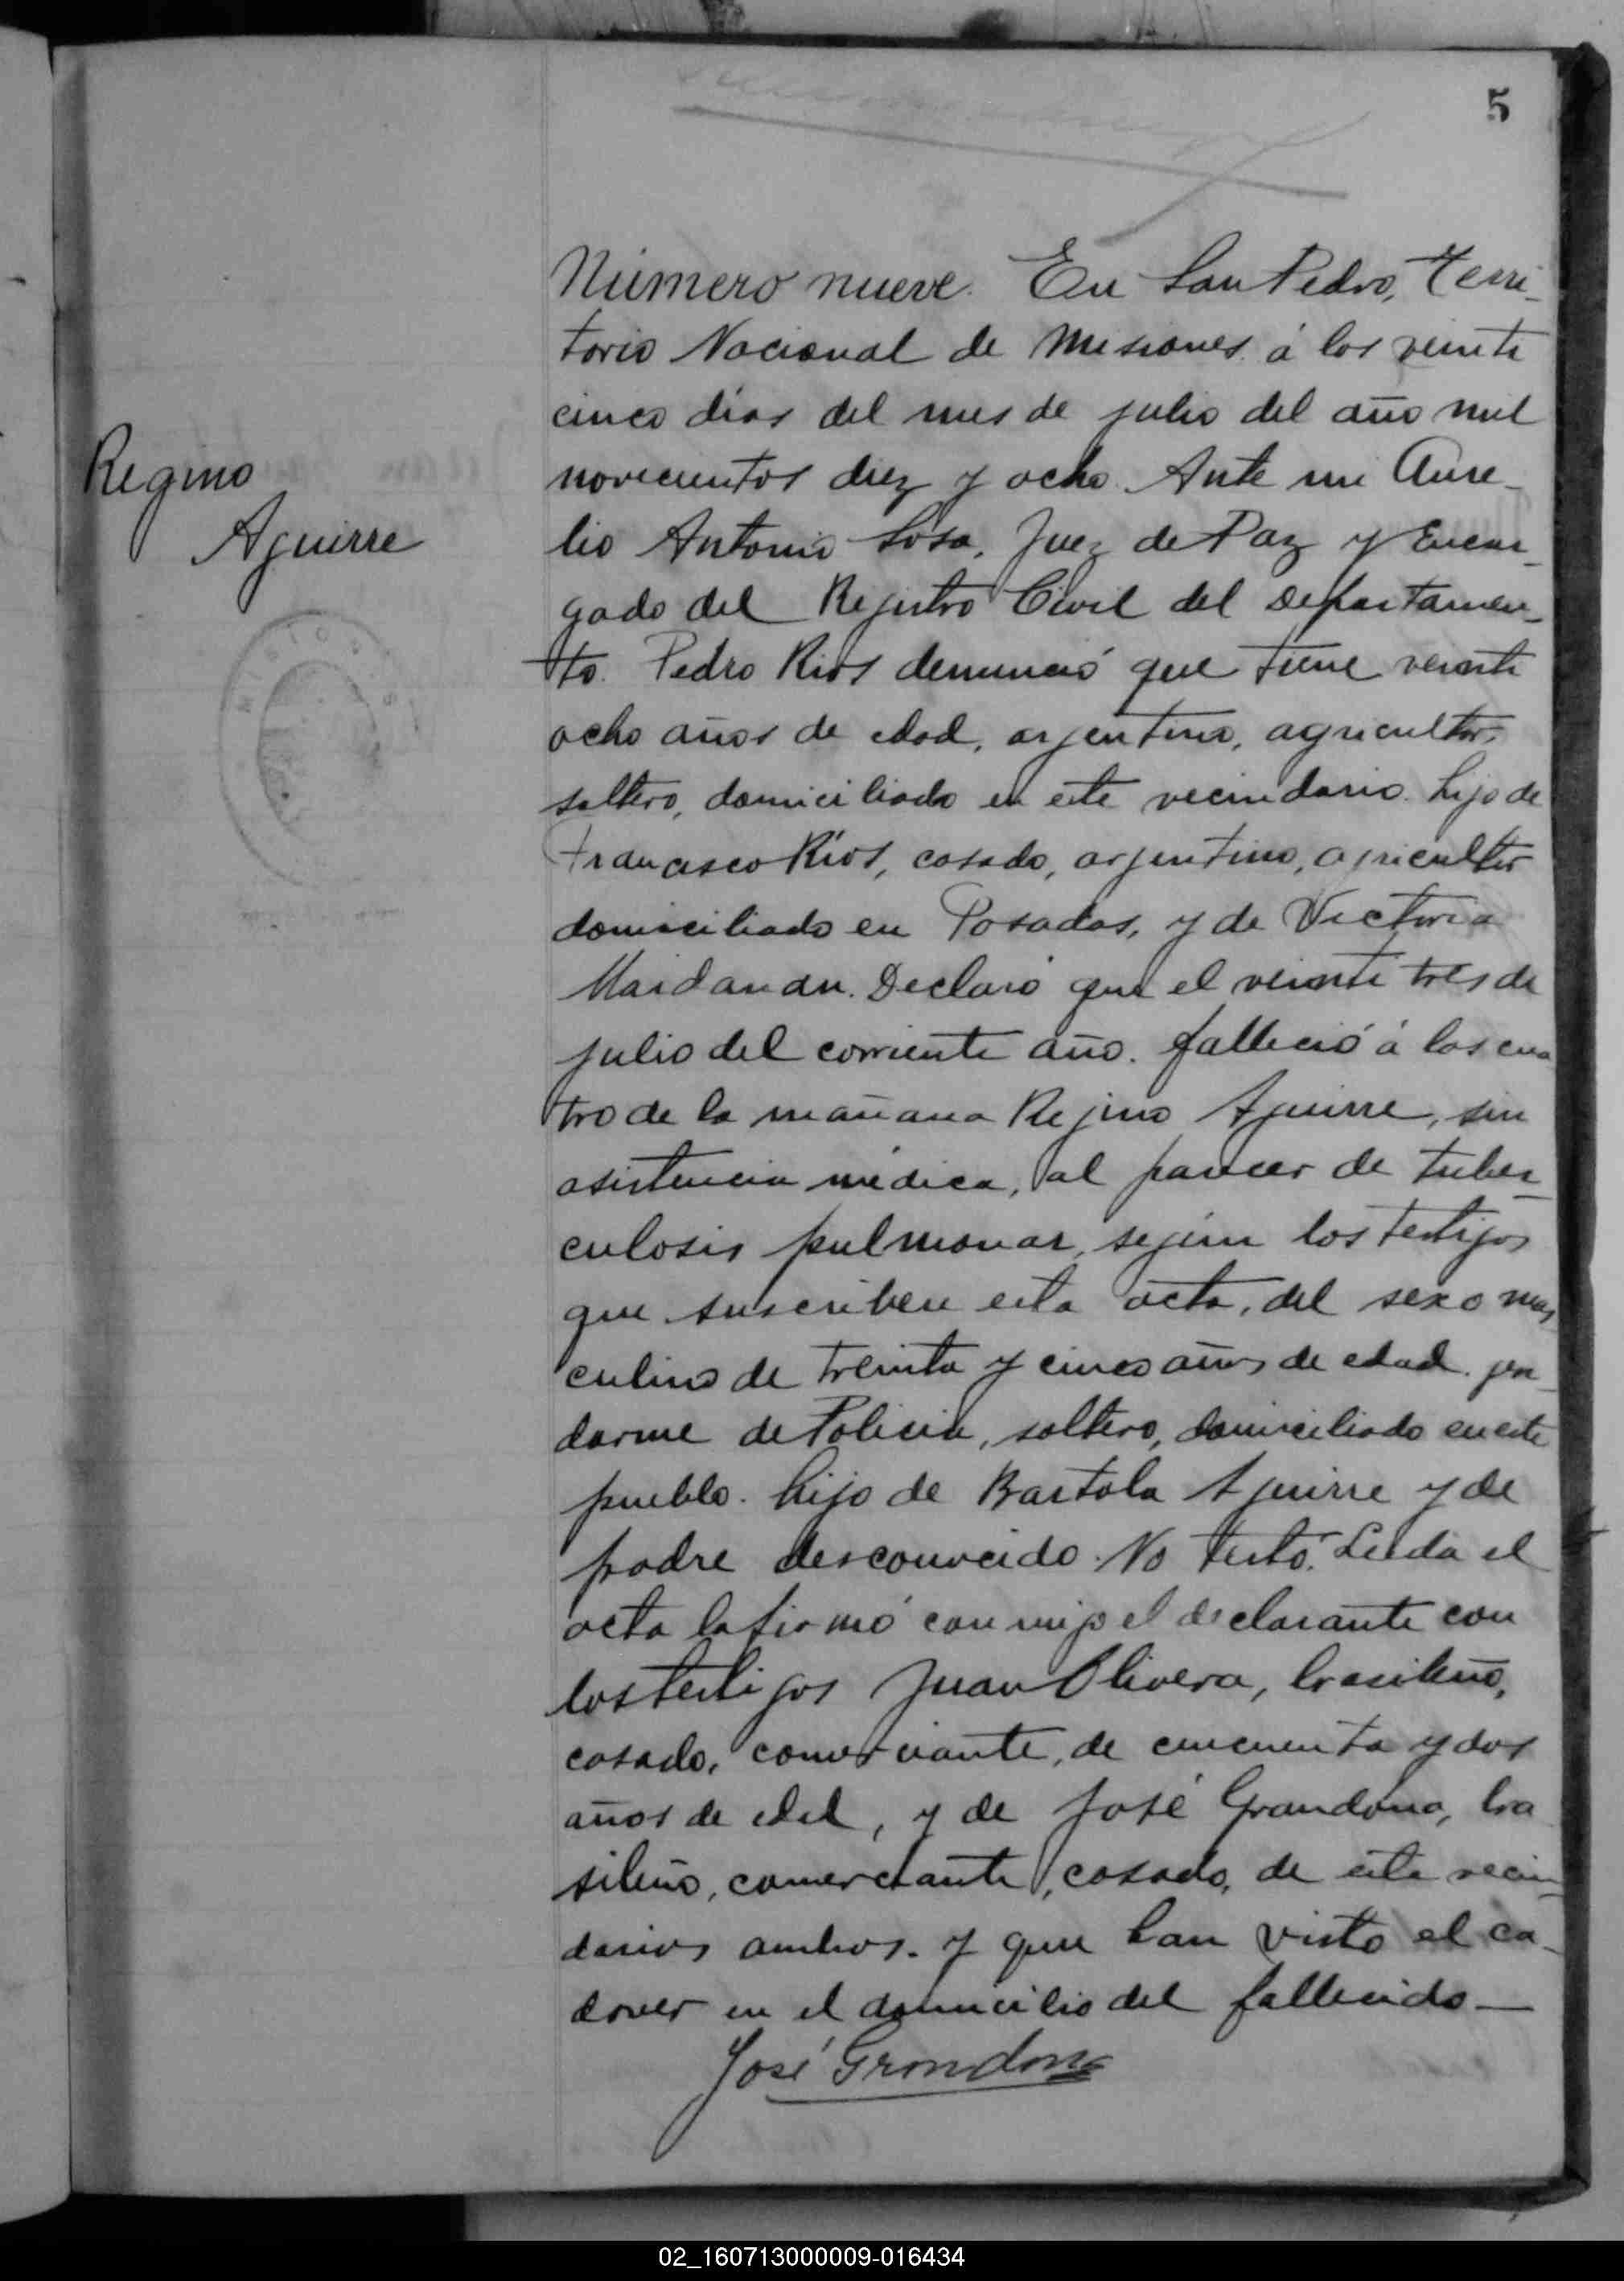 5
Número nueve. En San Pedro, Terri-
torio Nacional de Misiones á los veinte
cinco días del mes de julio del año mil
novecientos diez y ocho. Ante mi Aure-
Regino
Aguirre
lio Antonio Sosa, Juez de Paz y Encar-
gado del Rejistro Civil del Departamen-
to. Pedro Rios denunció que tiene veinte
ocho años de edad, arjentino, agricultor,
soltero, domiciliado en este vecindario. hijo de
Francisco Rios, casado, arjentino, agricultor
domiciliado en Posadas, y de Victoria
Maidanan. Declaró que el veinte tres de
julio del corriente año. falleció á las cua
tro de la mañana Rejino Aguirre, sin
asistencia médica, al parecer de tuber-
culosis pulmonar, segun los testigos
que suscriben esta acta, del sexo mas
culino de treinta y cinco años de edad. jen-
darme de Policia, soltero, domiciliado en este
pueblo. hijo de Bartola Aguirre y de
padre desconocido. No testó. Leida el
acta la firmó conmigo el declarante con
los testigos Juan Olivera, brasileño,
casado, comerciante, de cincuenta y dos
años de edad, y de José Grandona, bra
sileño, comerciante, casado, de este vecin-
darios ambos. y que han visto el ca-
daver en el domicilio del fallecido—
José Grondona
02_160713000009-016434